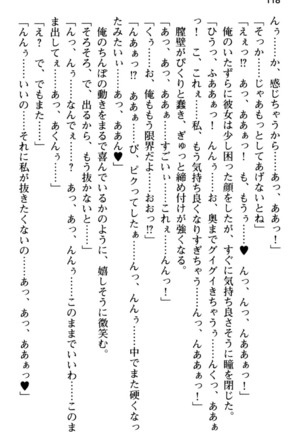 118
ん……か、感じちゃうから……あっ、ああんっ！」
「そっか。じゃあもっとしてあげないとね」
「ええっ！？　あっ、あああっ！　も、もうぅ……♥　んっ、んんっ、んっ、んんんっ！」
　俺のいたずらに彼女は少し困った顔をしたが、すぐに気持ち良さそうに瞳を閉じた。
「ひうっ、ふああぁっ！　んんっ……お、奥までグイグイきちゃう……んくっ、ああぁっ！　こ、これぇ……私、もう気持ち良くなりすぎちゃう……んんっ、んあぁぁっ！」
　膣壁がびくりと蠢き、ぎゅっと締め付けが強くなる。
「あっ、あっ、ああぁっ……すごいぃ……これぇっ！」
「くぅ……お、俺ももう限界だよ……おおっ！？」
「んあぁっ！？　ああぁ……び、ビクってしたぁ……んっ、んんぅ……中でまた硬くなったみたいぃ……あっ、ああん♥」
　俺のちんぽの動きをまるで喜んでいるかのように、嬉しそうに微笑む。
「そろそろ、で、出るから、もう抜かないと……」
「んっ、んぅ……なんでぇ……？　あっ、あっ、んんぅ……このままでいいわ……このまま出してぇ……あっ、あくんぅ……」
「え？　で、でもまた……」
「んんぅ……いいの……それに私が抜きたくないの……あっ、あっ、ああぁっ♥」